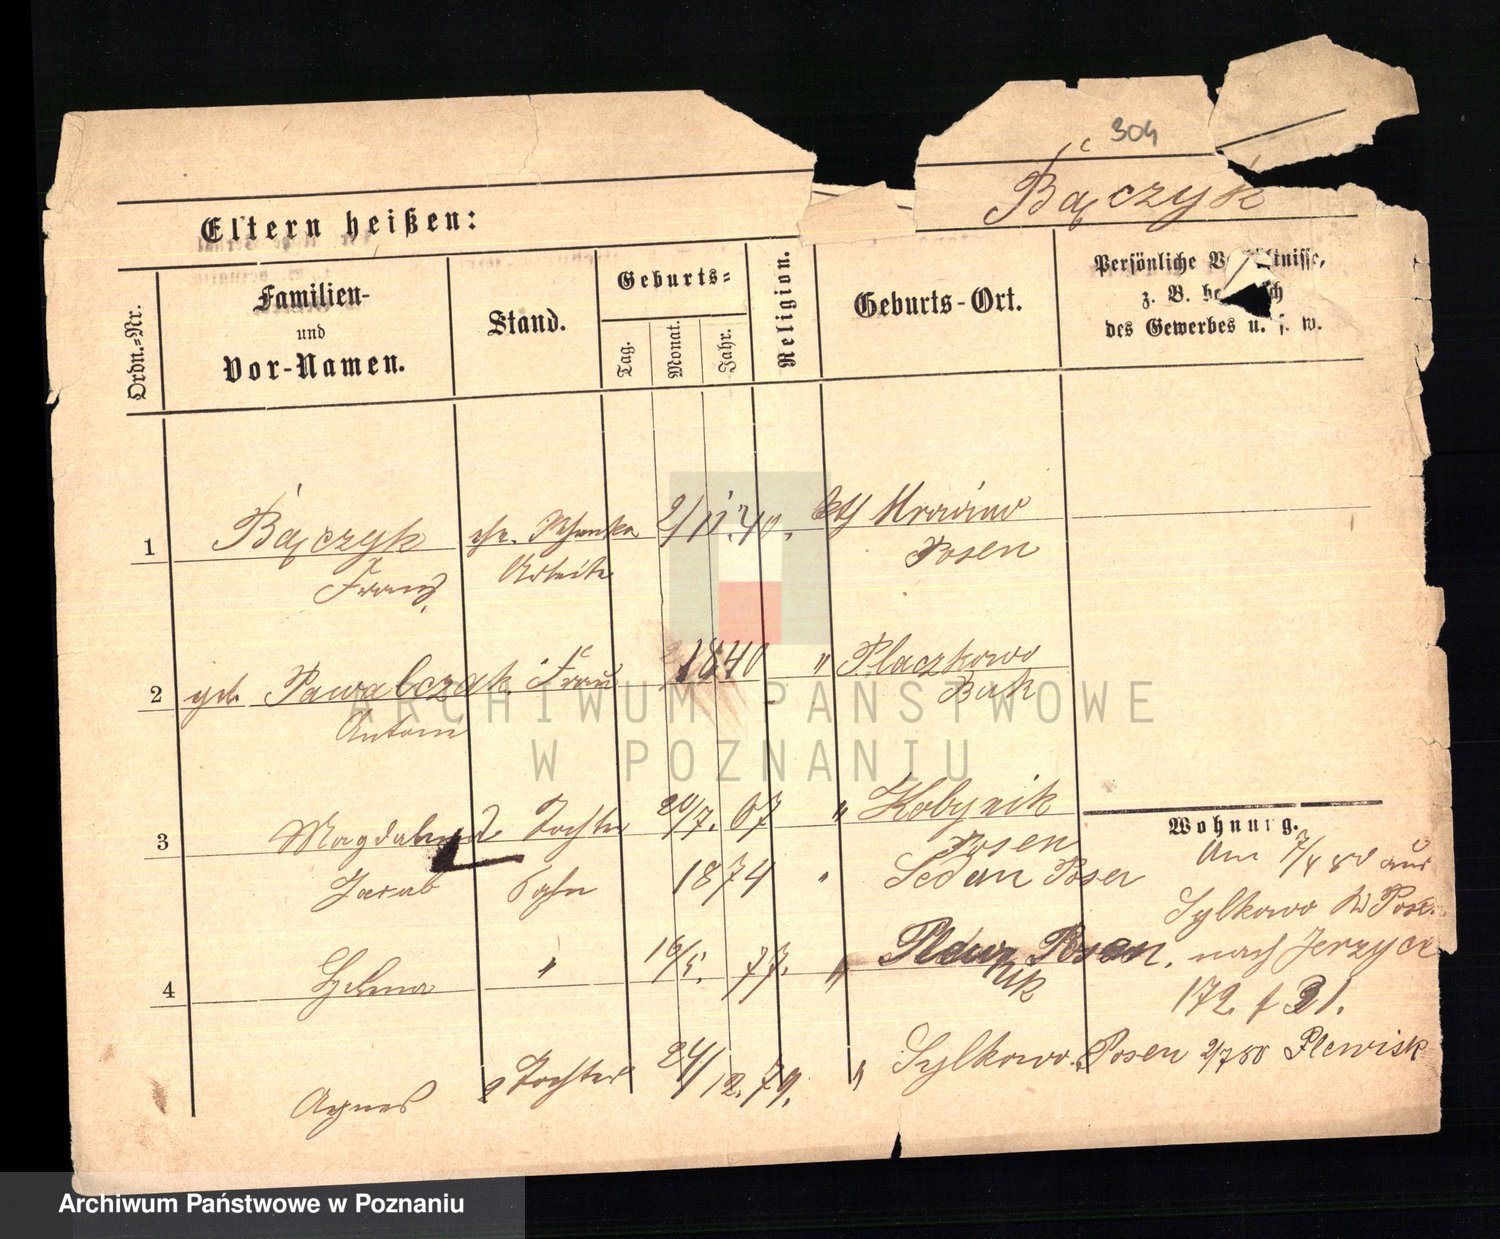 304
Bączyk
Eltern heißen:
Ordn.-Nr.
Familien-
und
Vor-Namen.
Stand.
Geburts-
Tag.
Monat.
Jahr.
Religion.
Geburts-Ort.
Persönliche
z. B.
des Gewerbes u. s. w.
1
Bączyk
Franz
2/11. 40.
kth
Posen
2
geb. Pawalczak Frau
Antoni
1840
" Placzkowo
Buk
3
Magdalena Tochter
20/7. 67
" Kobylnik
Posen
Jacob Sohn 1874 " Sedan Posen
4
" 16/5. 77. " Posen
Buk
Agnes Tochter 24/12. 79. " Sylkowo Posen
Wohnung.
Am 7/4 80 aus
Sylkowo Kr Posen
nach Jerzyce
172. f 31.
2/7 80 Plewisk
ARCHIWUM PAŃSTWOWE
W POZNANIU
Archiwum Państwowe w Poznaniu